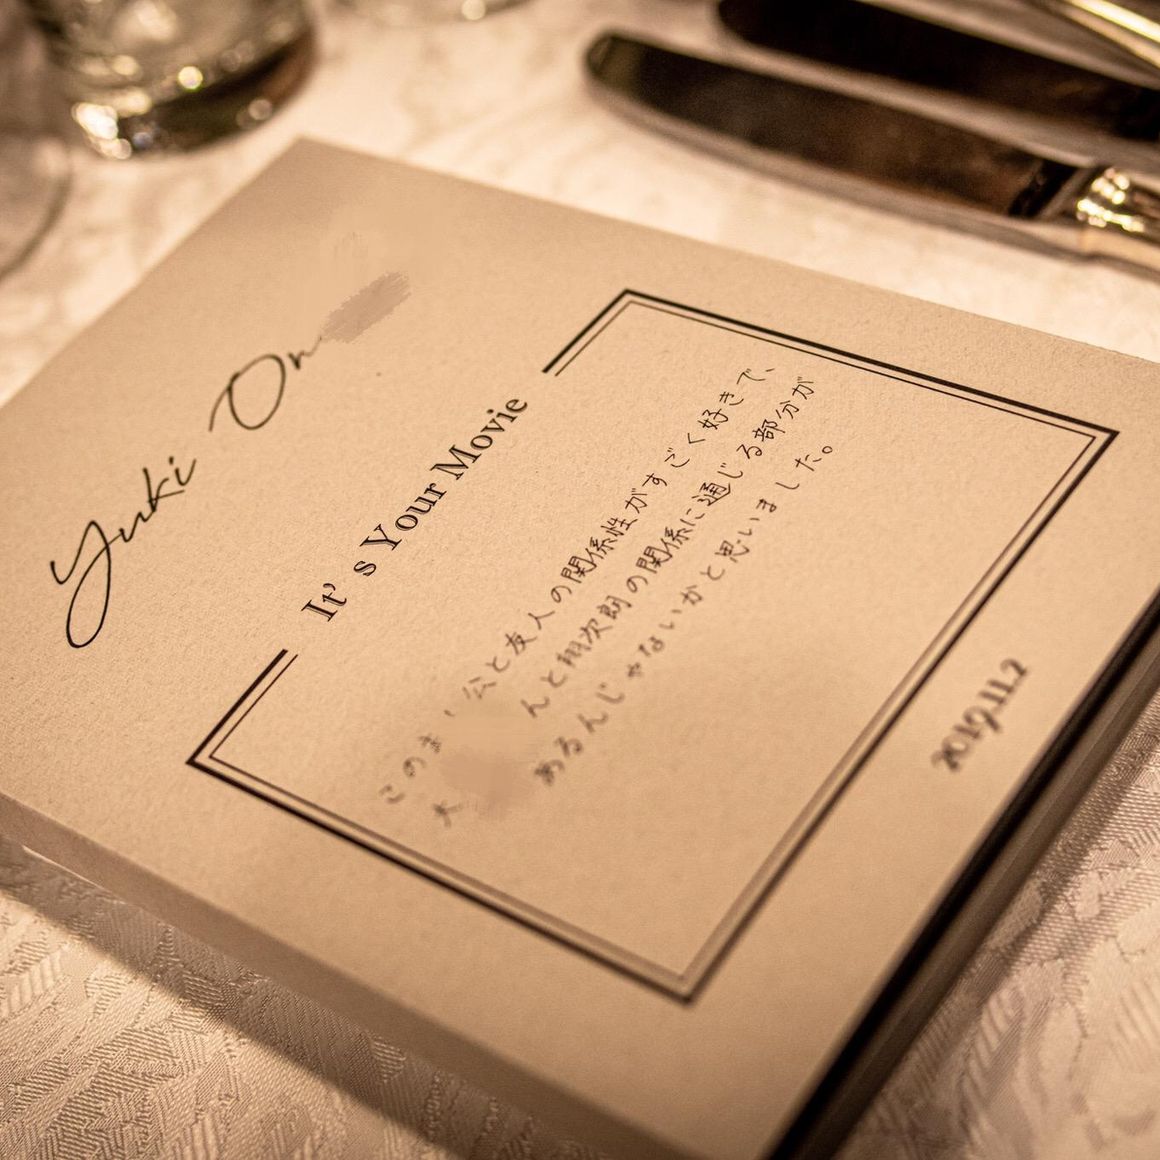 Yuki On
It's Your Movie
このま 公と友人の関係性がすごく好きで、
大 んと翔次朗の関係に通じる部分が
あるんじゃないかと思いました。
2019.11.2